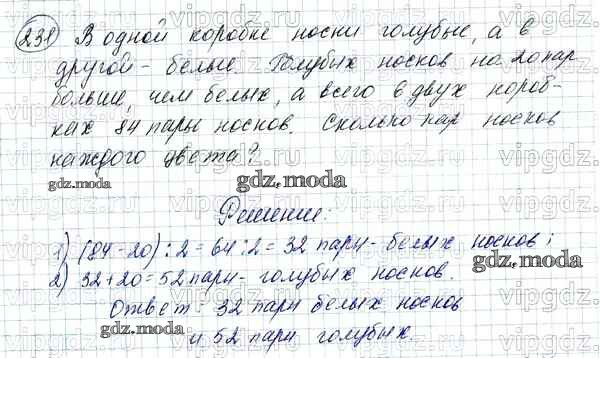 231 В одной коробке носки голубые, а в
другой - белые. Голубых носков на 20 пар
больше, чем белых, а всего в двух короб-
ках 84 пары носков. Сколько пар носков
каждого цвета?
gdz.moda gdz.moda
Решение:
1) (84-20):2=64:2=32 пары- белых носков;
gdz.moda
2) 32+20=52 пары- голубых носков.
Ответ: 32 пары белых носков
gdz.moda
и 52 пары голубых.
gdz.moda